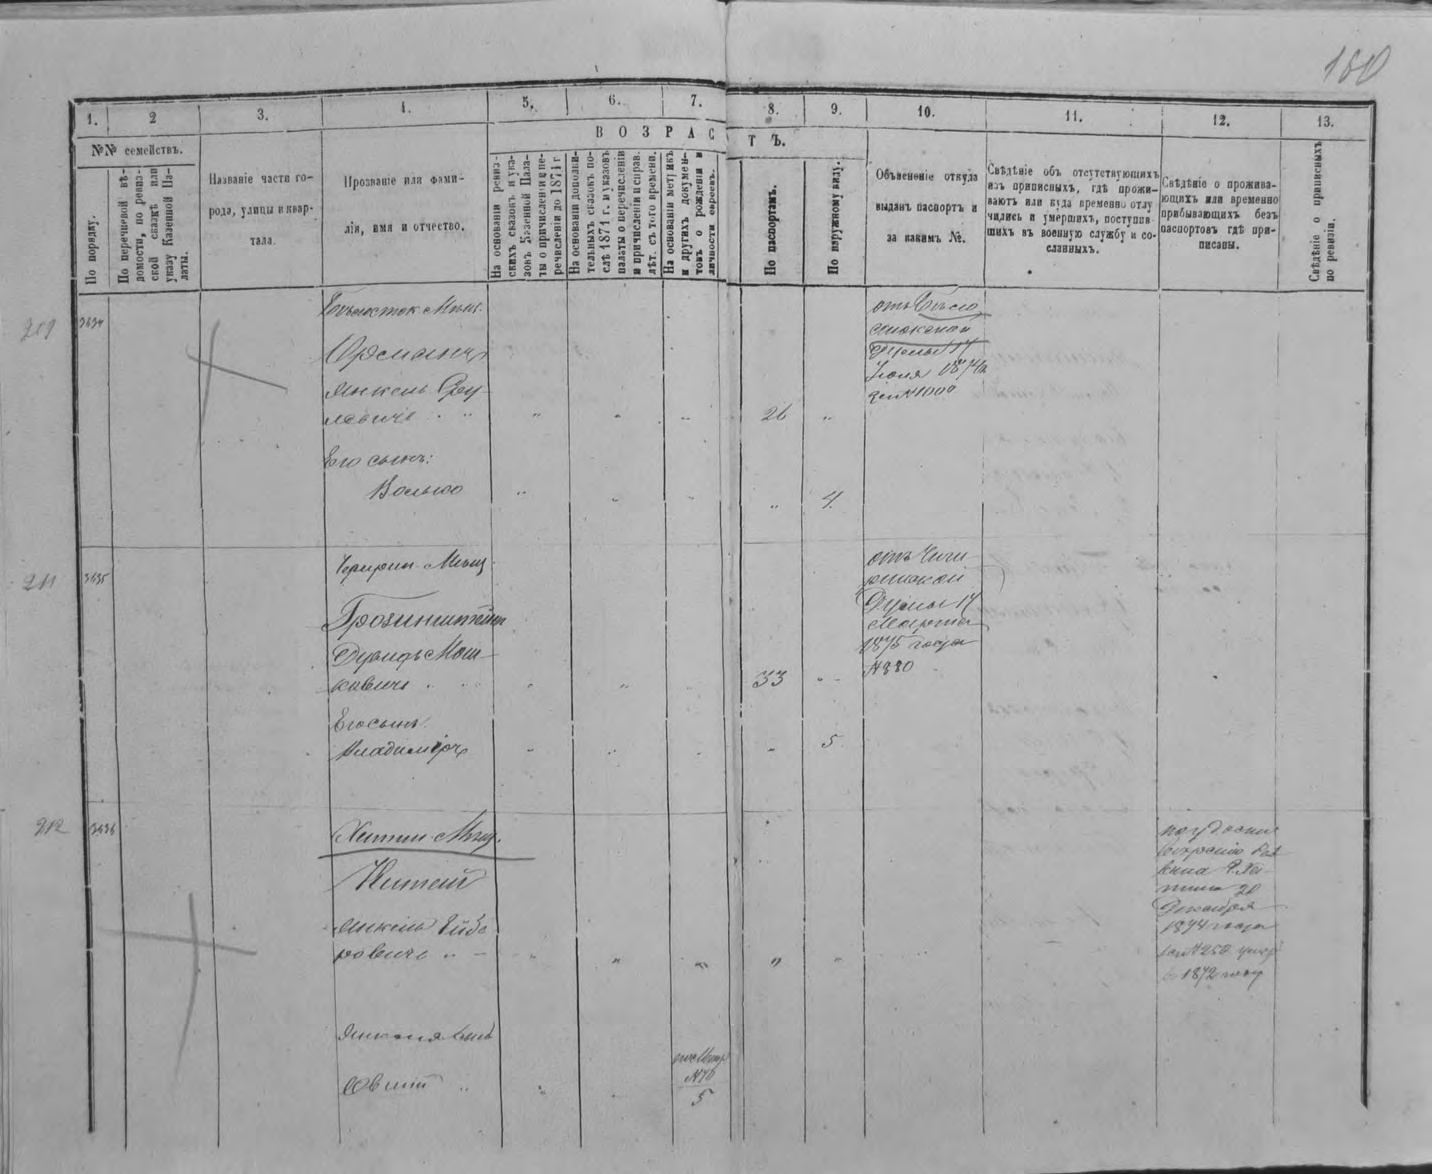 180
1.
2
3.
4.
5.
6.
7.
8.
9.
10.
11.
12.
13.
№№ семействъ.
ВОЗРАСТЪ.
По порядку.
По перечневой вѣ-
домости, по ревиз-
ской сказкѣ или
указу Казенной Па-
латы.
Названіе части го-
рода, улицы и квар-
тала.
Прозваніе или фами-
лія, имя и отчество.
На основаніи ревиз-
скихъ сказокъ и ука-
зовъ Казенной Пала-
ты о причисленіи и пе-
речисленіи до 1871 г
На основаніи дополни-
тельныхъ сказокъ по-
слѣ 1871 г. и указовъ
палаты о перечисленіи
и причисленіи и справ.
лѣт. съ того времени.
На основаніи метрикъ
и другихъ докумен-
товъ о рожденіи и
личности евреевъ.
По паспортамъ.
По наружному виду.
Объясненіе откуда
выданъ паспортъ и
за какимъ №.
Свѣдѣніе объ отсутствующихъ
изъ приписныхъ, гдѣ прожи-
ваютъ или куда временно отлу
чились и умершихъ, поступив-
шихъ въ военную службу и со-
сланныхъ.
Свѣдѣніе о прожива-
ющихъ или временно
прибывающихъ безъ
паспортовъ гдѣ при-
писаны.
Свѣдѣніе о приписныхъ
по ревизіи.
3634
Мѣщ.
Янкель
26
Его сынъ:
Волько
4.
211
3635
Чигирин. Мѣщ
Давидъ Мош-
ковичъ
33
Его сынъ
Владиміръ
5
отъ Чиги
ринской
Думы 17
Марта
1875 года
№ 880
212
3636
Хотин. Мѣщ.
Янкель
ровичъ
Янкеля сынъ
№ 70
5
20
Декабря
1874 года
за № 250 умер
в 1872 году